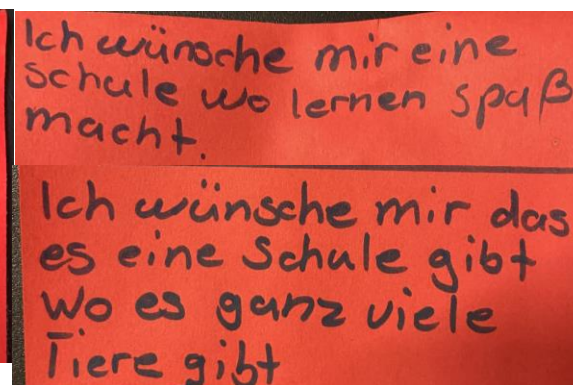 Ich wünsche mir eine
schule wo lernen spaß
macht.
Ich wünsche mir das
es eine Schule gibt
wo es ganz viele
Tiere gibt